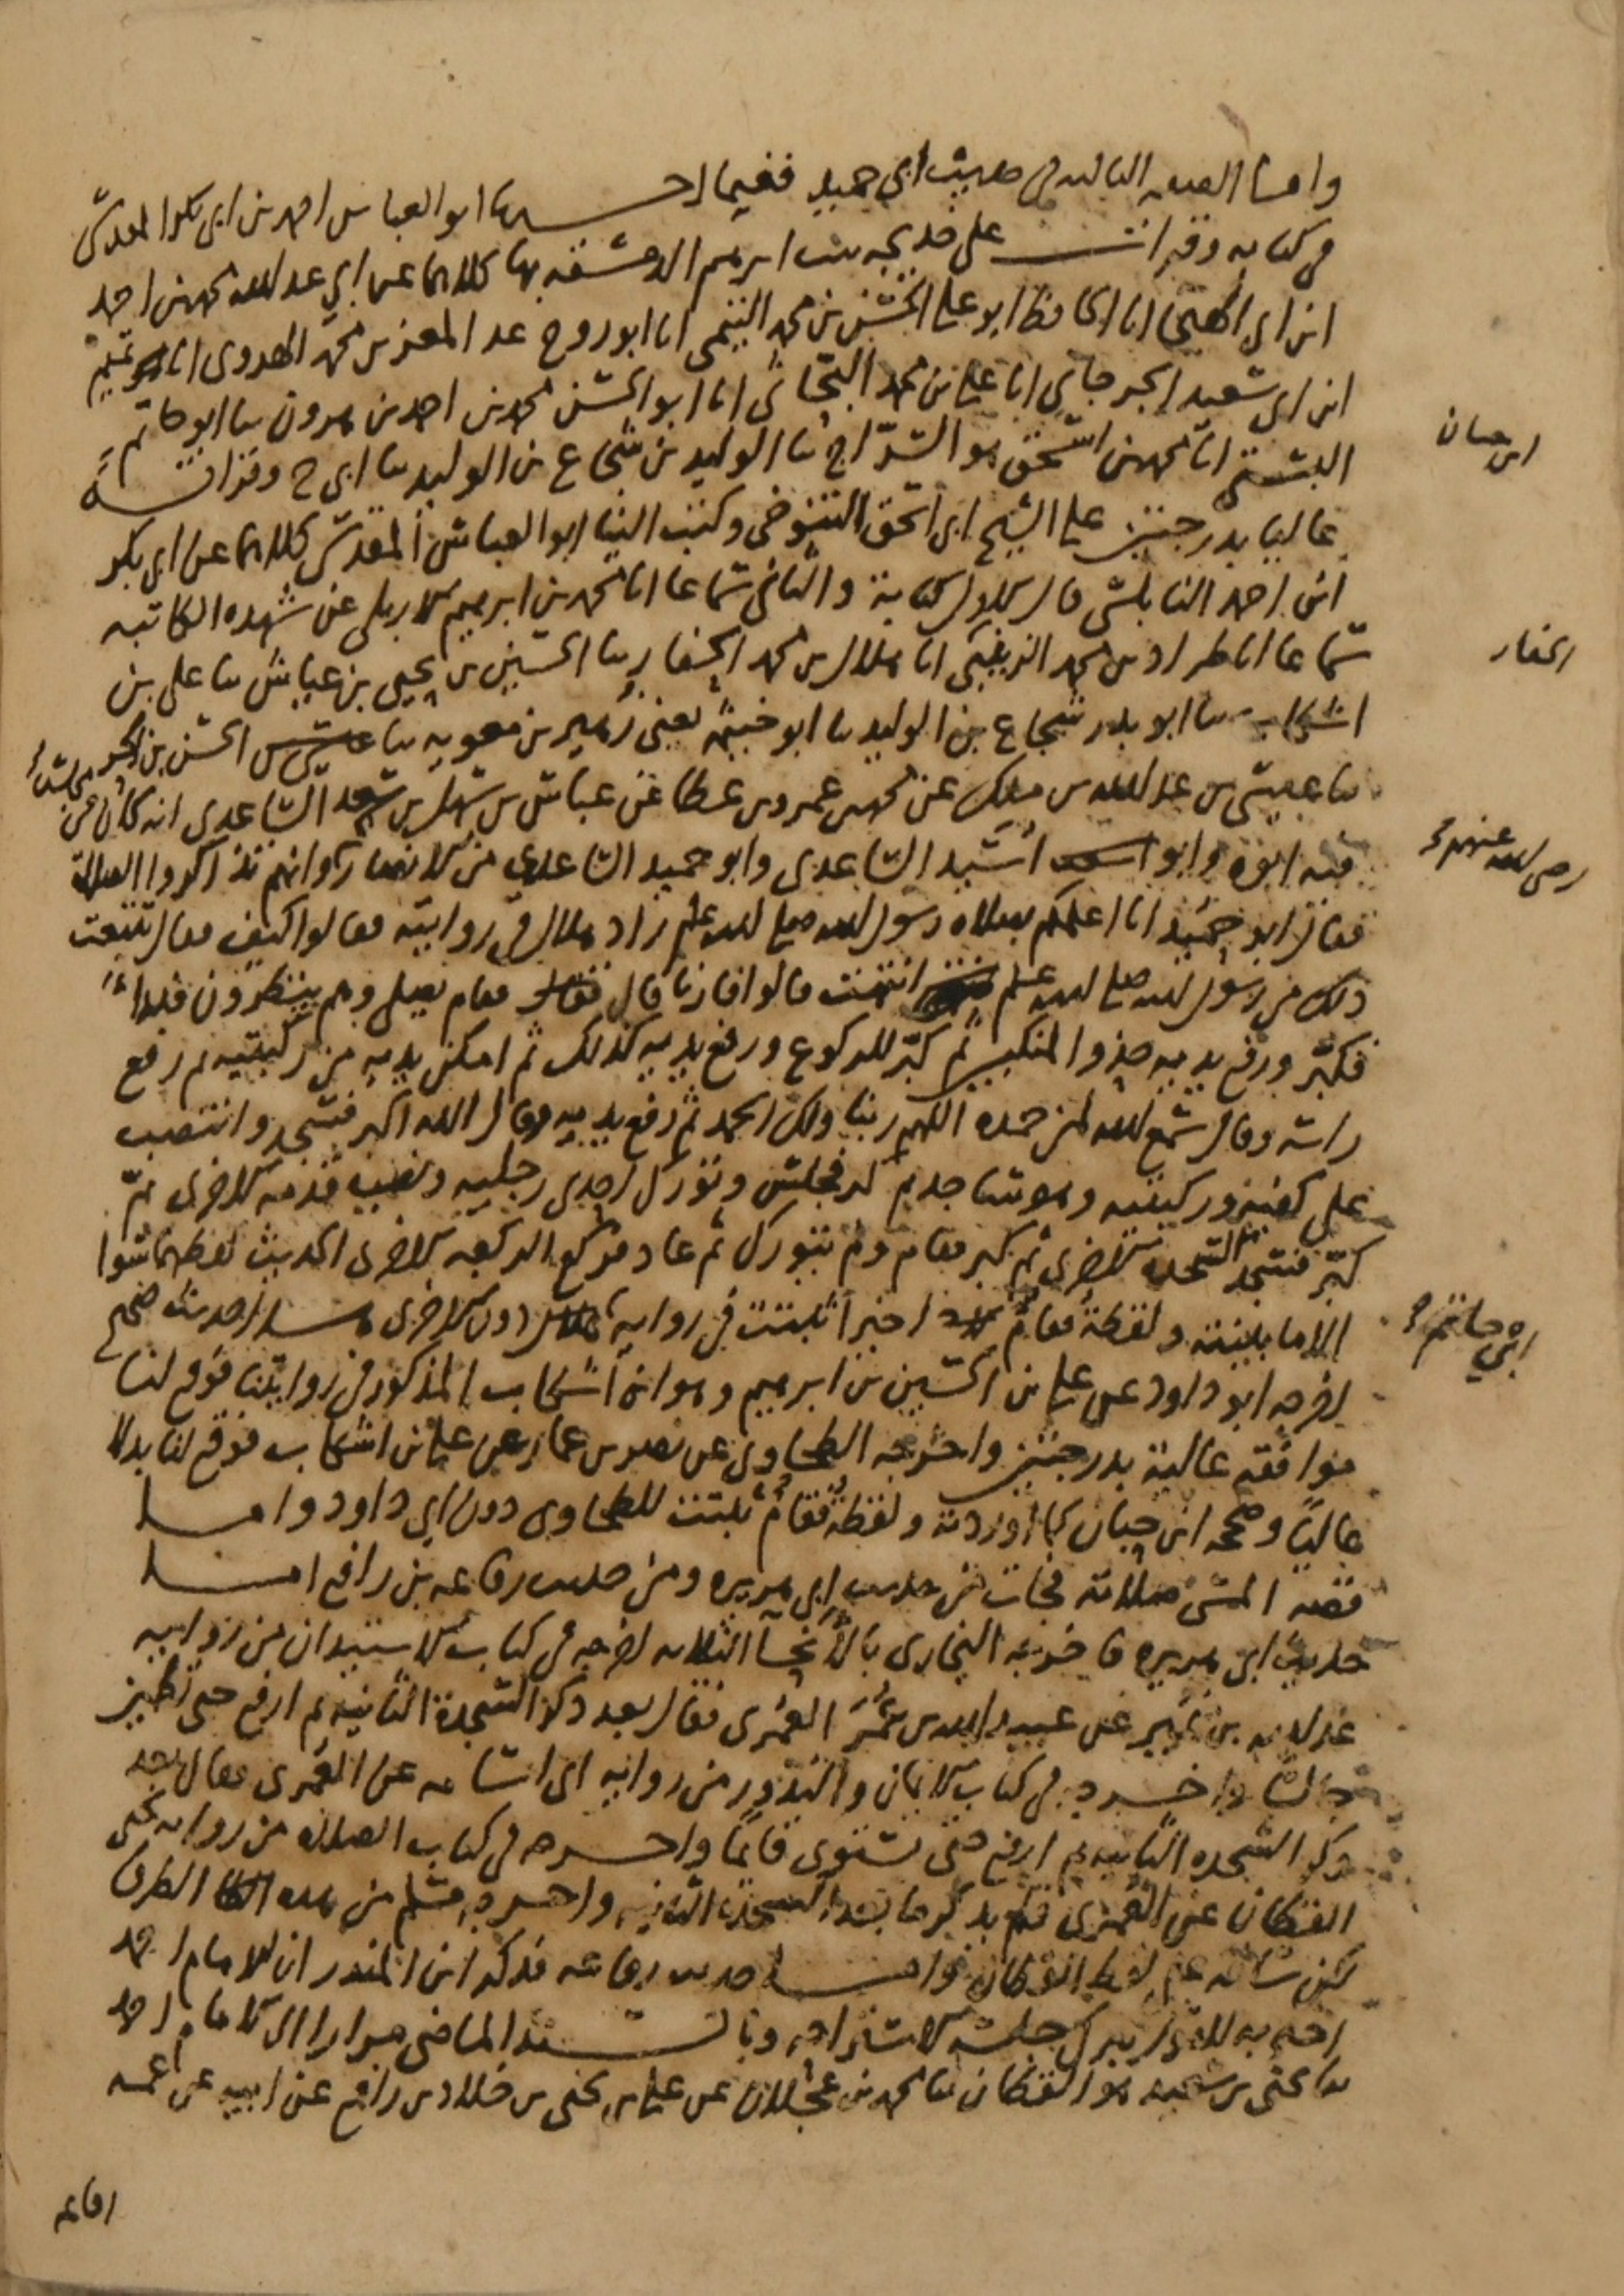 وأما الصفة الثالثة في حديث أبي حميد ففيما أخبرنا أبو العباس أحمد بن أبي بكر المقدسي
في كتابه وقرأت على خديجة بنت إبراهيم الدمشقية بها كلاهما عن أبي عبد الله محمد بن أحمد
ابن أبي الهيجا أنا الحافظ أبو علي الحسن بن محمد التيمي أنا أبو روح عبد المعز بن محمد الهروي أنا تميم
ابن أبي سعيد الجرجاني أنا علي بن محمد البحاثي أنا أبو الحسن محمد بن أحمد بن هرون ثنا أبو حاتم
البستي أنا محمد بن إسحق هو السراج ثنا الوليد بن شجاع بن الوليد ثنا أبي ح وقرأته
عاليا بدرجتين على الشيخ أبي إسحق التنوخي وكتب إلينا أبو العباس المقدسي كلاهما عن أبي بكر
ابن أحمد النابلسي قال الأول كتابة والثاني سماعا أنا محمد بن إبراهيم الأربلي عن شهدة الكاتبة
سماعا أنا طراد بن محمد الزينبي أنا هلال بن محمد الحفار ثنا الحسين بن يحيى بن عياش ثنا علي بن
اشكاب ثنا أبو بدر شجاع بن الوليد ثنا أبو خيثمة يعني زهير بن معوية ثنا الحسن بن الحر
ثنا عيسى بن عبد الله بن مالك عن محمد بن عمرو بن عطا عن عباس بن سهل بن سعد الساعدي أنه كان في مجلس
فيه أبوه وأبو أسيد الساعدي وأبو حميد الساعدي من الأنصار وأنهم تذاكروا الصلاة
فقال أبو حميد أنا أعلمكم بصلاة رسول الله صلى الله عليه وسلم زاد هلال في روايته فقالوا كيف فقال تتبعت
ذلك من رسول الله صلى الله عليه وسلم قالوا فأرنا قال فقام يصلي وهم ينظرون فبدأ
فكبر ورفع يديه حذو المنكبين ثم كبر للركوع ورفع يديه كذلك ثم أمكن يديه من ركبتيه ثم رفع
رأسه وقال سمع الله لمن حمده اللهم ربنا ولك الحمد ثم رفع يديه وقال الله أكبر فسجد وانتصب
على كفيه وركبتيه وهو ساجد ثم كبر فجلس وتورك إحدى رجليه ونصب قدمه الأخرى ثم
كبر فسجد السجدة الأخرى ثم كبر فقام ولم يتورك ثم عاد فركع الركعة الأخرى الحديث لفظهما سوا
إلا ما بينته ولفظة فقام أخيرا ثبتت في رواية دون الأخرى هذا حديث صحيح
أخرجه أبو داود عن علي بن الحسين بن إبراهيم وهو ابن اشكاب المذكور في روايتنا فوقع لنا
موافقة عالية بدرجتين وأخرجه الطحاوي عن نصر بن عمار عن علي بن اشكاب فوقع لنا بدلا
عاليا وصححه ابن حبان كما أوردته ولفظة فقام ثبتت للطحاوي دون أبي داود وأما
قصة المسئ صلاته فجات من حديث أبي هريرة ومن حديث رفاعة بن رافع أما
حديث أبي هريرة فأخرجه البخاري بالأنحآ الثلاثة أخرجه في كتاب الاستيذان من رواية
عبد الله بن نمير عن عبيد الله بن عمر العمري فقال بعد ذكر السجدة الثانية ثم ارفع حتى تطمئن
جالسا وأخرجه في كتاب الأيمان والنذور من رواية أبي أسامة عن العمري فقال بعد
ذكر السجدة الثانية ثم ارفع حتى تستوي قائما وأخرجه في كتاب الصلاة من رواية يحيى
القطان عن العمري فلم يذكر ما بعد السجدة الثانية وأخرجه مسلم من هذه الطرق
لكن ساقه على لفظ القطان وأما حديث رفاعة فذكر ابن المنذر أن الإمام أحمد
احتج به للترك جلسة الاستراحة وبالسند الماضي مرارا إلى الإمام أحمد
ثنا يحيى بن سعيد هو القطان ثنا محمد بن عجلان عن علي بن يحيى بن خلاد بن رافع عن أبيه عن عمه
ابن حبان
الحفار
رضي الله عنهم
ابن حاتم
رفاعة